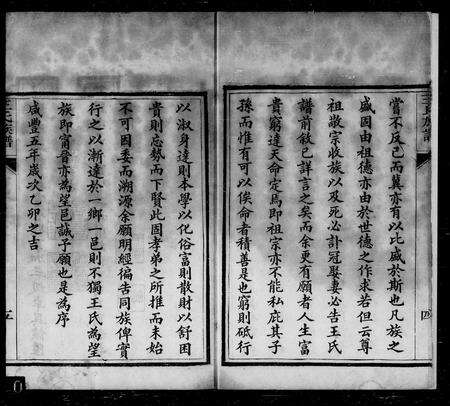 嘗不反己而冀亦有以比盛於斯也凡族之
盛固由祖德亦由於世德之作求若但云尊
祖敬宗收族以及死必訃冠娶妻必告王氏
譜前敘已詳言之矣而余更有願者人生富
貴窮達天命定焉即祖宗亦不能私庇其子
孫而惟有可以俟命者積善是也窮則砥行
以淑身達則本學以化俗富則散財以舒困
貴則忘勢而下賢此固孝弟之所推而未始
不可因委而溯源余願明經徧告同族俾實
行之以漸達於一鄉一邑則不獨王氏為望
族即甯晉亦為望邑誠予願也是為序
咸豐五年歲次乙卯之吉
王氏族譜
四